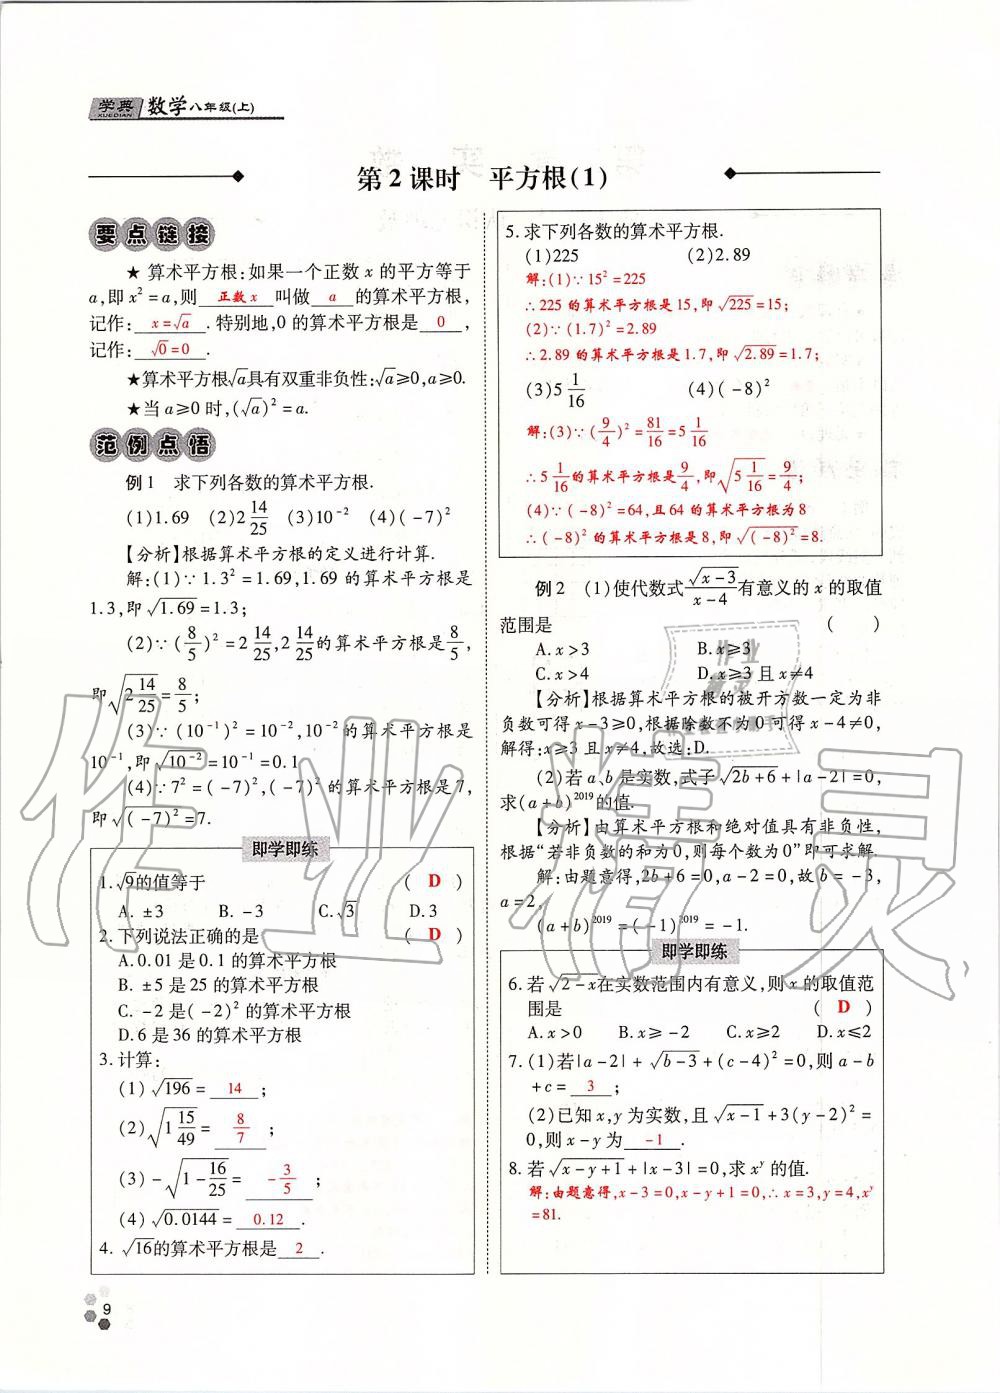 学典 XUEDIAN 数学八年级(上)
第2课时　平方根(1)
要点链接
★ 算术平方根:如果一个正数 x 的平方等于
a,即 x²=a,则 正数 x 叫做 a 的算术平方根,
记作: x=√a .特别地,0 的算术平方根是 0 ,
记作: √0=0 .
★算术平方根√a具有双重非负性:√a≥0,a≥0.
★当 a≥0 时,(√a)²=a.
范例点悟
例1　求下列各数的算术平方根.
(1)1.69　(2)2 14/25　(3)10⁻²　(4)(-7)²
【分析】根据算术平方根的定义进行计算.
解:(1)∵1.3²=1.69,1.69 的算术平方根是
1.3,即√1.69=1.3;
(2)∵(8/5)²=2 14/25,2 14/25的算术平方根是8/5,
即√(2 14/25)=8/5;
(3)∵(10⁻¹)²=10⁻²,10⁻²的算术平方根是
10⁻¹,即√(10⁻²)=10⁻¹=0.1
(4)∵7²=(-7)²,(-7)²的算术平方根是7,
即√((-7)²)=7.
即学即练
1.√9的值等于 ( D )
A. ±3　B. -3　C.√3　D.3
2.下列说法正确的是 ( D )
A.0.01 是 0.1 的算术平方根
B. ±5 是 25 的算术平方根
C. -2 是(-2)²的算术平方根
D.6 是 36 的算术平方根
3.计算:
(1)√196= 14 ;
(2)√(1 15/49)= 8/7 ;
(3)-√(1-16/25)= -3/5 ;
(4)√0.0144= 0.12 .
4. √16的算术平方根是 2 .
5.求下列各数的算术平方根.
(1)225　(2)2.89
解:(1)∵15²=225
∴225 的算术平方根是 15,即√225=15;
(2)∵(1.7)²=2.89
∴2.89 的算术平方根是 1.7,即√2.89=1.7;
(3)5 1/16　(4)(-8)²
解:(3)∵(9/4)²=81/16=5 1/16
∴5 1/16的算术平方根是9/4,即√(5 1/16)=9/4;
(4)∵(-8)²=64,且 64 的算术平方根为 8
∴(-8)²的算术平方根是 8,即√((-8)²)=8.
例2　(1)使代数式√(x-3)/(x-4)有意义的 x 的取值
范围是 (　　)
A.x>3　B.x≥3
C.x>4　D.x≥3 且 x≠4
【分析】根据算术平方根的被开方数一定为非
负数可得 x-3≥0,根据除数不为 0 可得 x-4≠0,
解得:x≥3 且 x≠4,故选:D.
(2)若 a,b 是实数,式子√(2b+6)+|a-2|=0,
求(a+b)²⁰¹⁹的值.
【分析】由算术平方根和绝对值具有非负性,
根据“若非负数的和为0,则每个数为0”即可求解.
解:由题意得,2b+6=0,a-2=0,故 b=-3,
a=2,
(a+b)²⁰¹⁹=(-1)²⁰¹⁹=-1.
即学即练
6.若√(2-x)在实数范围内有意义,则 x 的取值范
围是 ( D )
A.x>0　B.x≥-2　C.x≥2　D.x≤2
7.(1)若|a-2|+√(b-3)+(c-4)²=0,则 a-b
+c= 3 ;
(2)已知 x,y 为实数,且√(x-1)+3(y-2)²=
0,则 x-y 为 -1 .
8.若√(x-y+1)+|x-3|=0,求 xʸ 的值.
解:由题意得,x-3=0,x-y+1=0,∴x=3,y=4,xʸ
=81.
9
作业精灵